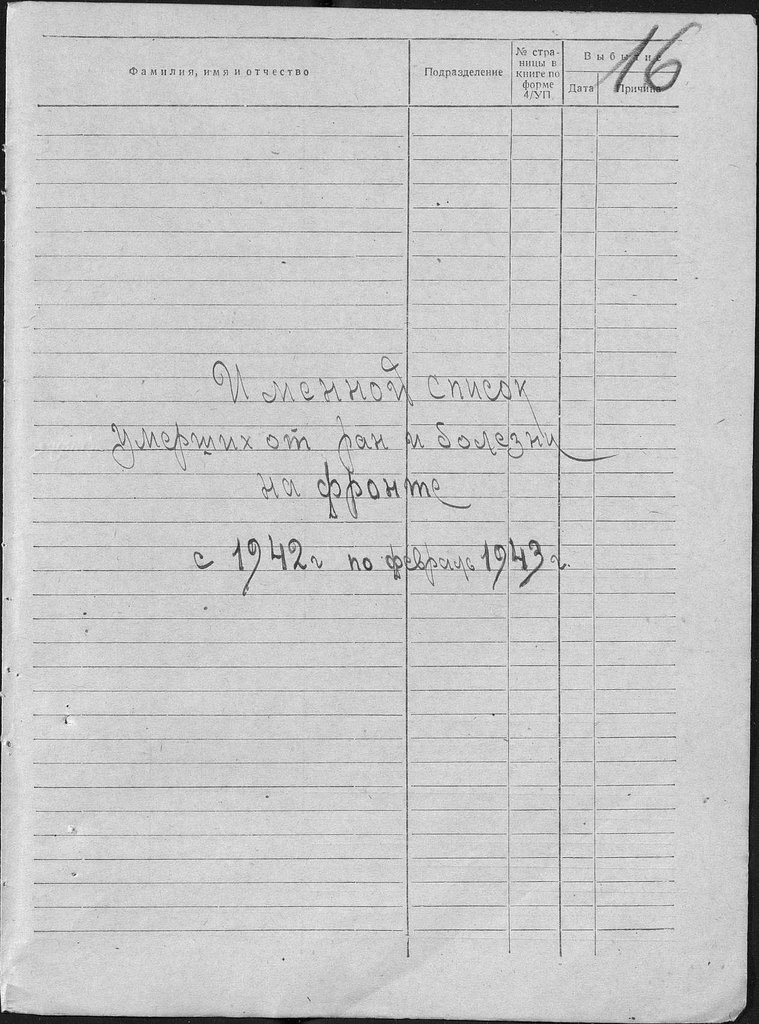 16
Фамилия, имя и отчество
Подразделение
№ стра-
ницы в
книге по
форме
4/УП
Выбытие
Дата
Причина
Именной список
умерших от ран и болезни
на фронте
с 1942 г по февраль 1943 г.